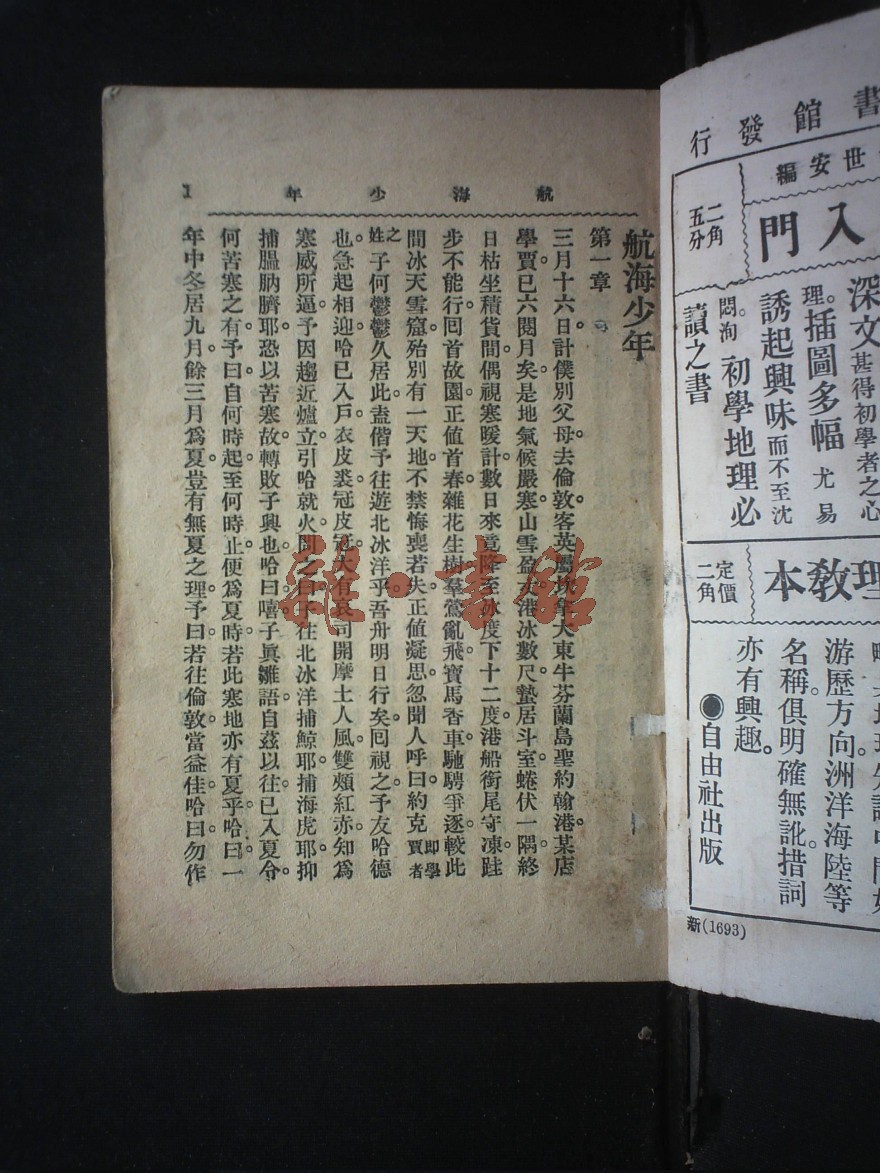 航海少年 1
航海少年
第一章
三月十六日計僕別父母去倫敦客英屬坎拿大東牛芬蘭島聖約翰港某店
學賈已六閱月矣。是地氣候嚴寒山雪盈丈港冰數尺蟄居斗室蜷伏一隅終
日枯坐積貨間偶視寒暖計數日來竟降至冰度下十二度港船銜尾守凍跬
步不能行。回首故園正値首春雜花生樹羣鶯亂飛寶馬香車馳騁爭逐較此
間冰天雪窟殆別有一天地。不禁悔喪若失正値凝思忽聞人呼曰約克即學賈者
之姓子何鬱鬱久居此盍偕予往遊北冰洋乎吾舟明日行矣。回視之予友哈德
也。急起相迎哈已入戶衣皮裘冠皮冠大有哀司開摩土人風。雙頰紅赤知爲
寒威所逼。予因趨近爐立引哈就火問之曰子往北冰洋捕鯨耶捕海虎耶抑
捕膃肭臍耶恐以苦寒故轉敗子興也。哈曰嘻子眞雛語自茲以往已入夏令。
何苦寒之有。予曰自何時起至何時止便爲夏時若此寒地亦有夏乎。哈曰一
年中冬居九月。餘三月爲夏豈有無夏之理予曰若往倫敦當益佳。哈曰勿作
雜·書館
書館發行
世安編
入門
二角五分
深文甚得初學者之心
理。插圖多幅尤易
誘起興味而不至沈
悶洵初學地理必
讀之書
理教本
定價二角
游歷方向洲洋海陸等
名稱。俱明確無訛。措詞
亦有興趣。
●自由社出版
新(1693)